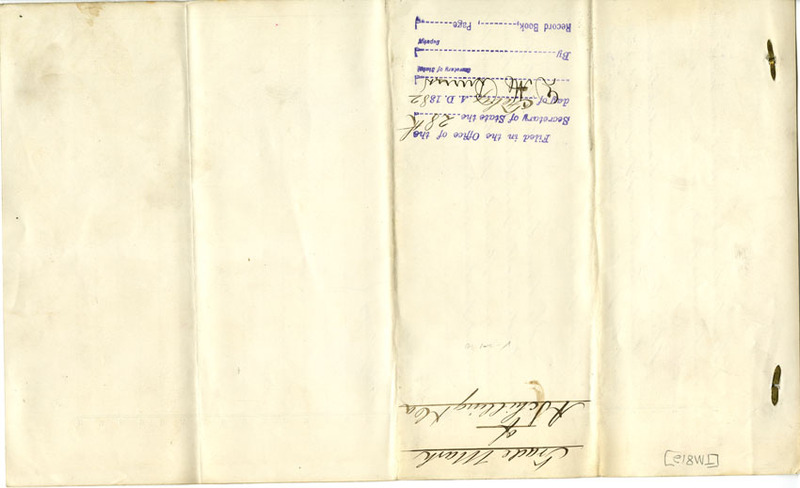 Trade Mark
of
A Schilling & Co
Filed in the Office of the
Secretary of State the 28th
day of A. D. 1882
Secretary of State
By
Deputy
Record Book, , Page
[TM812]